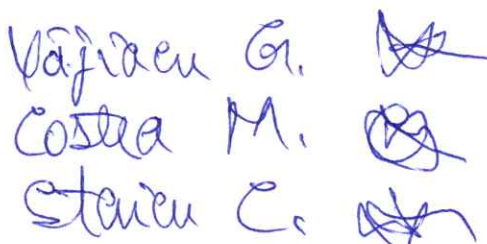 Vâjiacu G.
Costea M.
Staicu C.